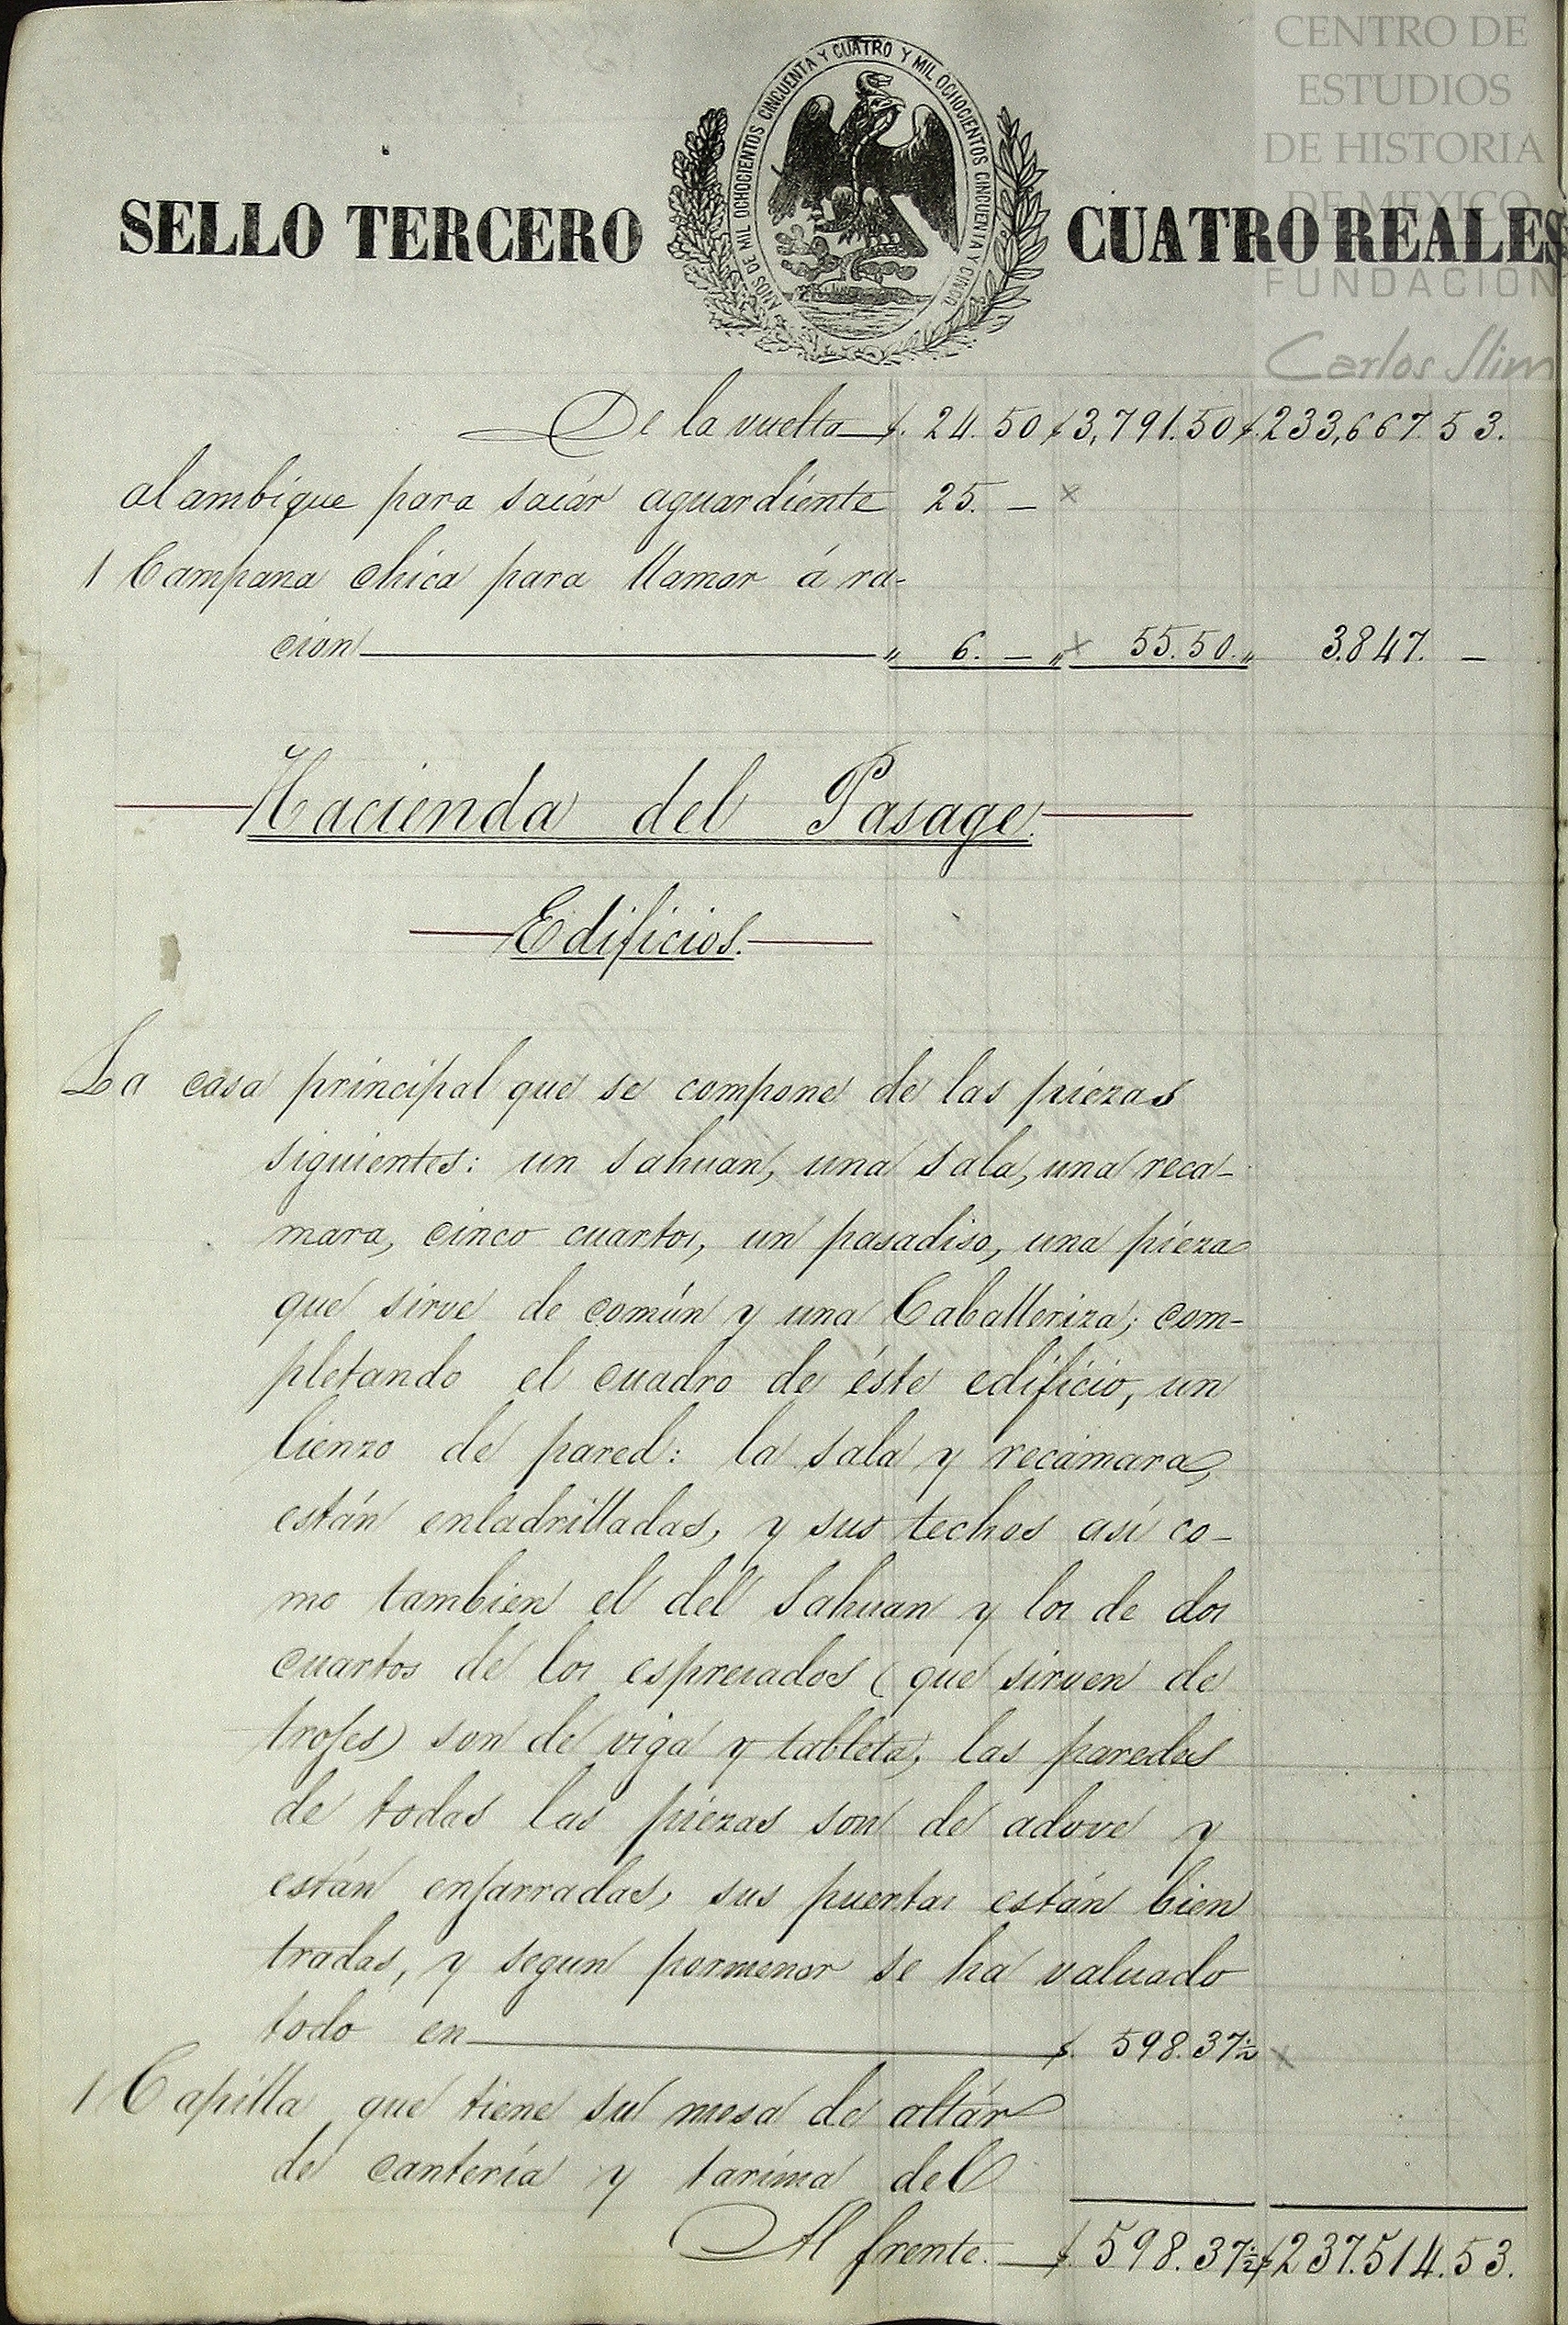 CENTRO DE
ESTUDIOS
DE HISTORIA
DE MEXICO
FUNDACIÓN
Carlos Slim
AÑOS DE MIL OCHOCIENTOS CINCUENTA Y CUATRO Y MIL OCHOCIENTOS CINCUENTA Y CINCO
SELLO TERCERO CUATRO REALES
De la vuelta $. 24.50 $3,791.50 $.233,667.53.
alambique para sacár aguardiente 25. — x
1 Campana chica para llamar á ra-
cion „ 6. — „ x 55.50. „ 3.847. —
Hacienda del Pasage.
Edificios.
La casa principal que se compone de las piezas
siguientes: un sahuan, una sala, una reca-
mara, cinco cuartos, un pasadiso, una pieza
que sirve de común y una Caballeriza; com-
pletando el cuadro de éste edificio, un
lienzo de pared: la sala y recámara,
están enladrilladas, y sus techos así co-
mo tambien el del Sahuan y los de dos
cuartos de los espresados (que sirven de
trojes) son de viga y tableta; las paredes
de todas las piezas son de adove y
están enjarradas, sus puertas están bien
tradas, y segun pormenor se ha valuado
todo en $. 598.37½ x
1 Capilla que tiene su mesa de altár
de cantería y tarima del
Al frente. $. 598.37½ $237.514.53.